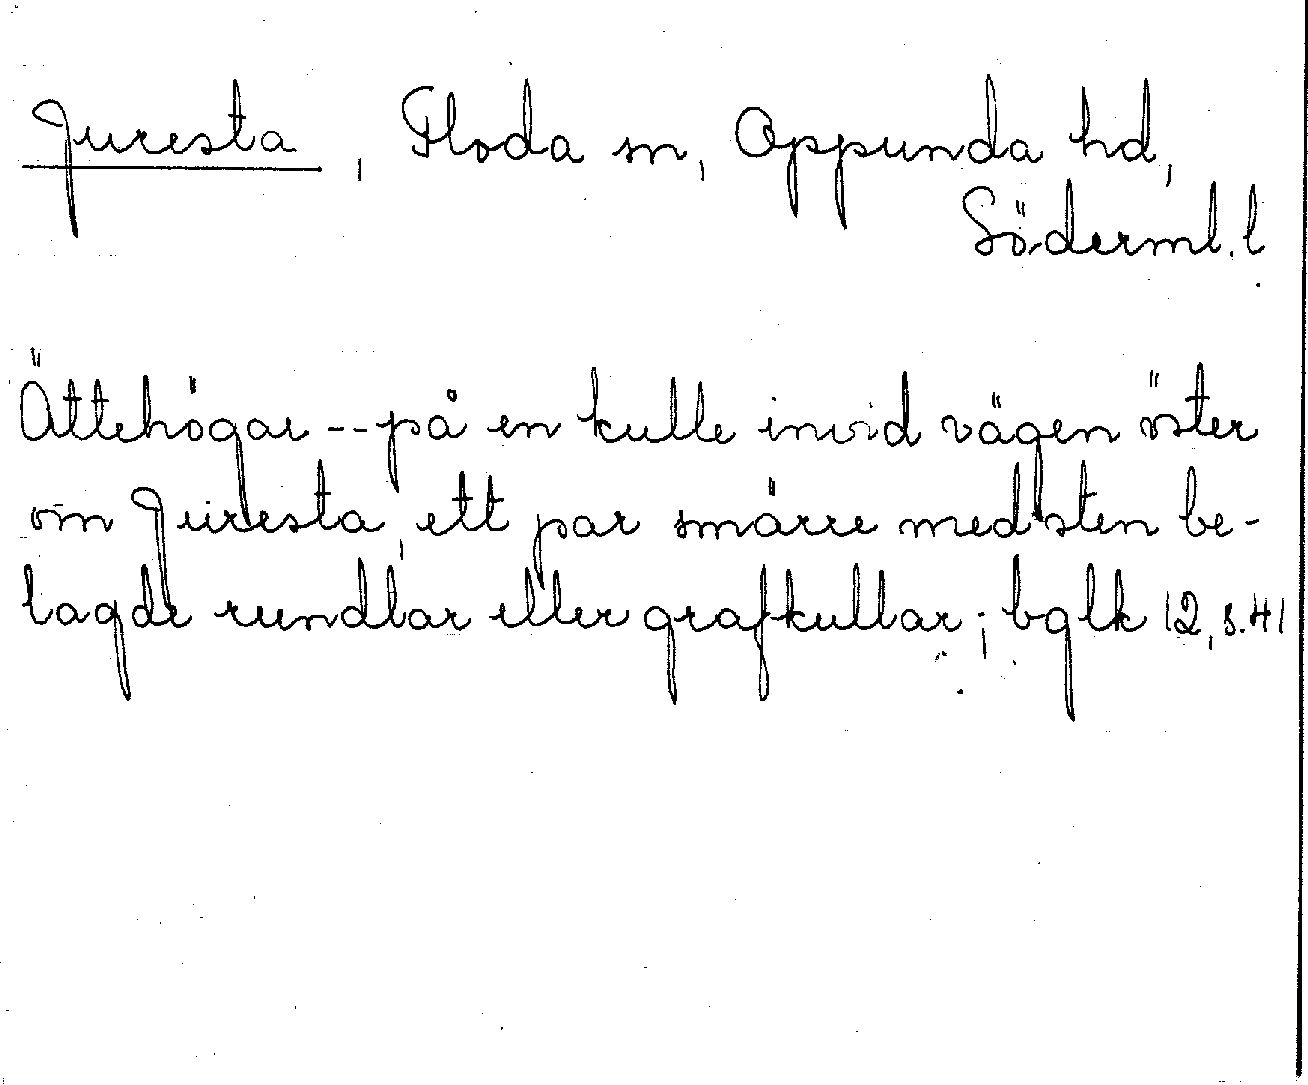 Juresta, Floda sn, Oppunda hd,
Söderml. l
Ättehögar -- på en kulle invid vägen öster
om Juresta, ett par smärre med sten be-
lagde rundlar eller grafkullar; bglk 12, s. 41